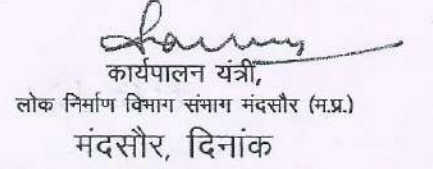 कार्यपालन यंत्री,
लोक निर्माण विभाग संभाग मंदसौर (म.प्र.)
मंदसौर, दिनांक